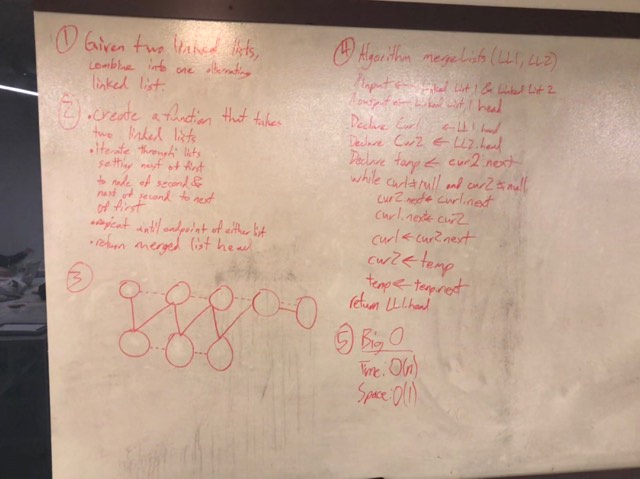 ① Given two linked lists,
combine into one alternating
linked list.
② • create a function that takes
two linked lists
• iterate "through" lists
setting next of first
to node of second &
next of second to next
of first
• repeat until endpoint of either list
• return merged list head
③
④ Algorithm mergeLists (LL1, LL2)
// input ← Linked List 1 & Linked List 2
// output ← Linked List 1 head
Declare Cur1 ← LL1.head
Declare Cur2 ← LL2.head
Declare temp ← cur2.next
while cur1 ≠ null and cur2 ≠ null
cur2.next ← cur1.next
cur1.next ← cur2
cur1 ← cur2.next
cur2 ← temp
temp ← temp.next
return LL1.head
⑤ Big O
Time: O(n)
Space: O(1)